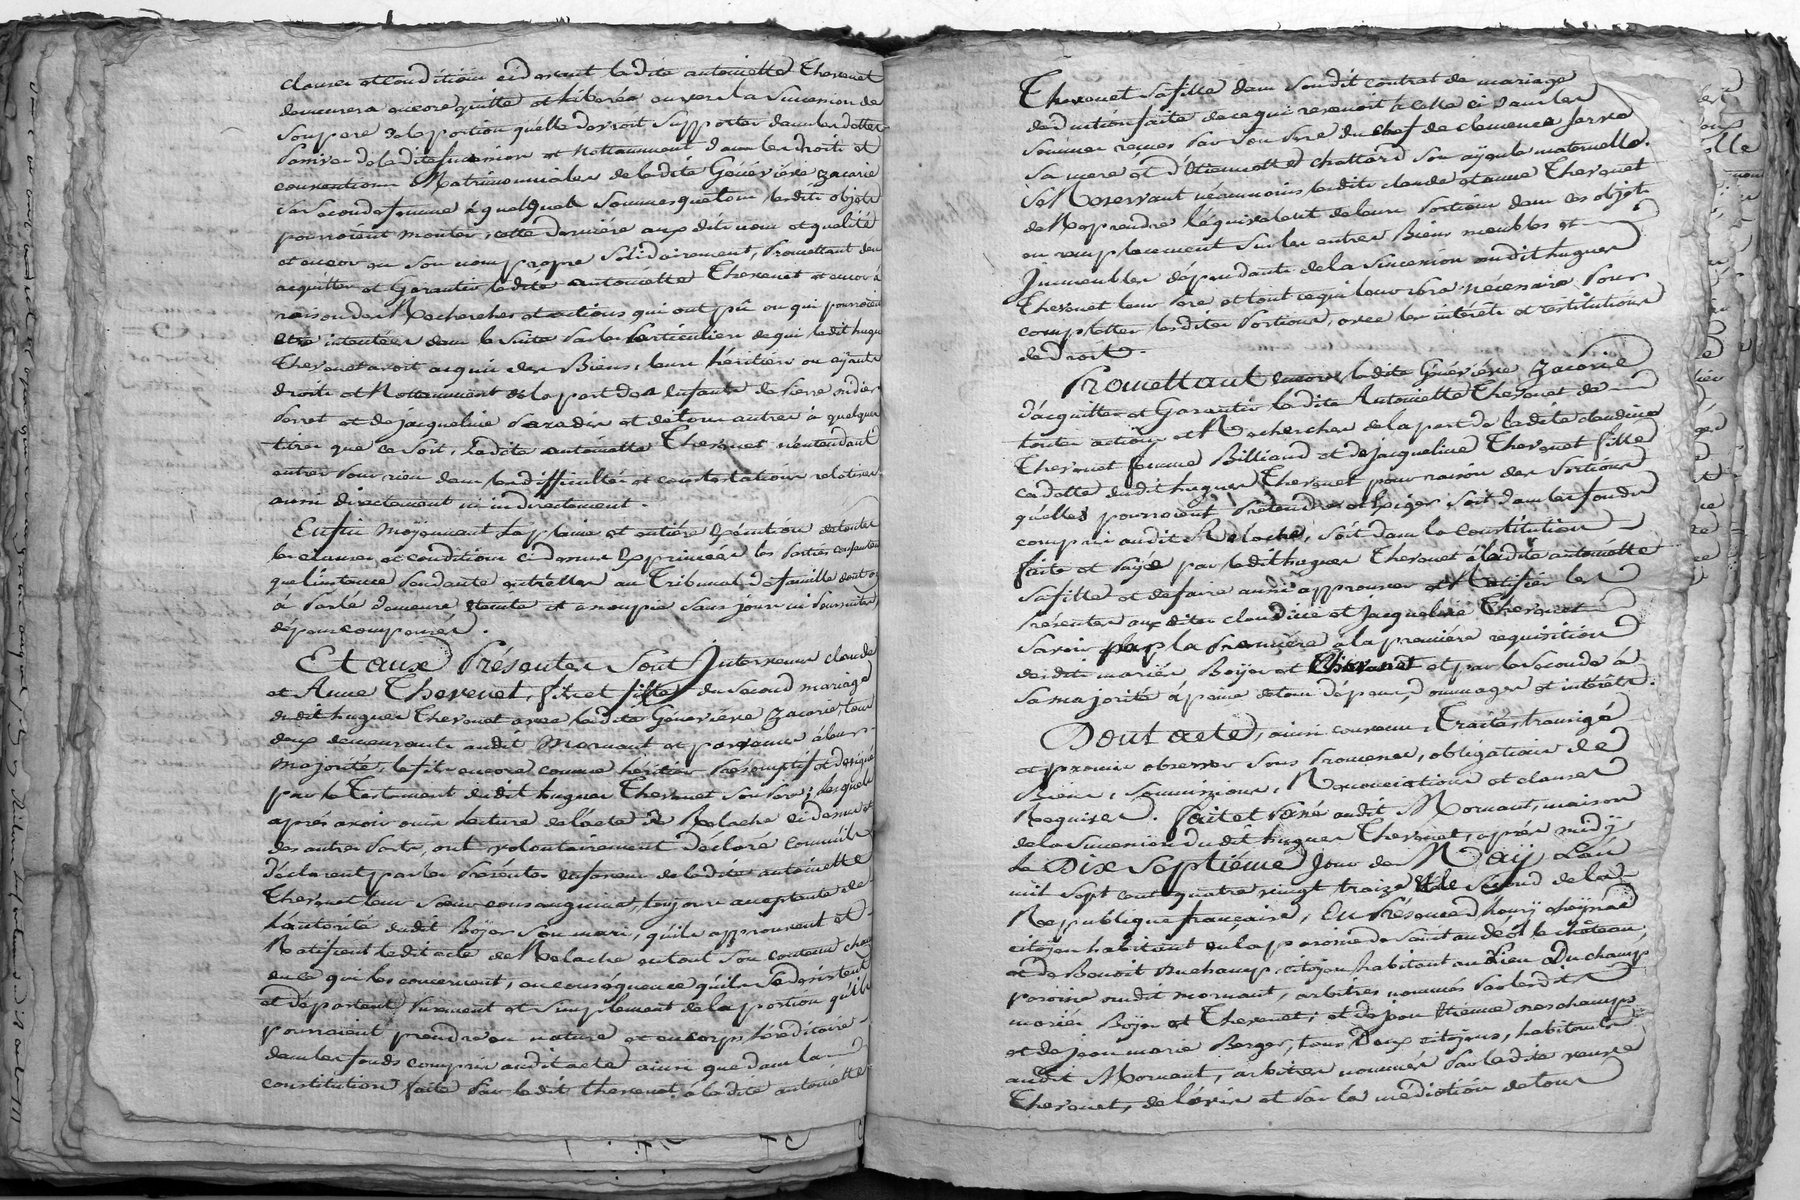 clauses et conditions cidevant ladite antoinette Thevenet
demeurera encore quitte et liberée envers la succession de
son pere de la portion quelle devroit supporter dans les dettes
passives de ladite succession et nottamment dans les droits et
conventions Matrimonniales de ladite Génévièvre Zacarie
sa seconde femme à quelques sommes que tous lesdits objets
pourroient monter, cette dernière aux dits nom et qualité
et encor en son nom propre solidairement, Promettant den
acquitter et Garantir ladite antoinette Thevenet et encor à
raison des Recherches et actions qui ont pû ou qui pourroient
etre intentées dans la suite par les particuliers de qui ledit hugues
Thevenet avoit acquis des Biens, leurs héritiers ou aÿants
droits et Nottamment de la part des enfants de Pierre
Perret et de jacqueline et de tous autres à quelques
titres que ce soit, ladite antoinette Thevenet nentendant
entrer pour rien dans les difficultés et contestations relatives
aussi directement ni indirectement.
Enfin moÿennant la pleine et entière Exécution de toutes
les clauses et conditions cidessus Exprimées les Parties consentent
que l'instance pendante entrelles au Tribunal de famille dont on
à Parlé demeure éteinte et assoupie sans jour ni Poursuites,
dépens compensés.
Et aux Présentes Sont Intervenus claude
et Anne Thevenet, fils et fille du second mariage
dudit hugues Thevenet avec ladite Génévièvre Zacarie tous
deux demeurants audit Mornant et parvenus à leur
majorité, le fils encore comme héritier Présomptif et designé
par le Testament dudit hugues Thevenet son Pere, lesquels
après avoir ouis lecture de l'acte de Relache ci dessus et
des autres parts, ont volontairement déclaré comm'ils
déclarent par les Présentes en faveur de ladite antoinette
Thevenet leur Sœur consanguine, toujours acceptante de
l'autorité dudit Boÿer son mari, qu'ils approuvent et
Ratifient ledit acte de Relache en tout son contenu chacun
en ce qui les concernent, en conséquence qu'ils se désistent
et départent Purement et simplement de la portion qu'ils
pourroient prendre en nature et en corps héréditaire
dans les fonds compris audit acte ainsi que dans la
constitution faite par ledit thevenet à ladite antoinette
Thevenet sa fille dans son dit contrat de mariage
deduction faite de ce qui revenoit à celle ci dans les
sommes reçues par son Pere du chef de clemence Serre
sa mere et d'Etiennette chattard son aÿeule maternelle.
se Réservant néanmoins lesdits claude et anne Thevenet
de Reprendre l'équivalent de leurs Portions dans ces objets
en remplacement sur les autres Biens meubles et
Immeubles dépendants de la succession dudit hugues
Thevenet leur Pere et tout ce qui leur sera nécessaire Pour
completter lesdites Portions, avec les intérêts et restitutions
de droit.
Promettant encore ladite Génévièvre Zacarie
d'acquitter et Garantir ladite Antoinette Thevenet de
toutes actions et Recherches de la part de ladite claudine
Thevenet femme Billiand et de jacqueline Thevenet fille
cadette dudit hugues Thevenet pour raison des Portions
qu'elles pourroient Prétendre et Exiger soit dans les fonds
compris audit Relache, soit dans la Constitution
faite et Paÿée par ledit hugues Thevenet à ladite antoinette
sa fille et de faire aussi approuver et Ratifier les
présentes aux dites claudine et Jacqueline Thevenet
savoir par la Première à la première requisition
desdits mariés Boÿer et Thevenet et par la Seconde à
sa majorité à peine de tous dépens, dommages et intérêts.
Dont acte, ainsi convenu, Traité, transigé
et promis observer sous Promesses, obligations de
Biens, soumissions, Renonciations et clauses
Requises. fait et Passé audit Mornant, maison
de la succession dudit hugues Thevenet, après midÿ
Le Dix Septième Jour de Maÿ L'an
mil sept cent quatre vingt treize et le Second de la
République française, En Présence d'henrÿ
citoÿen habitant en la paroisse de saint andéol le château,
et de Benoit Duchamp, citoÿen habitant au lieu Duchamp
paroisse dudit mornant, arbitres nommés par lesdits
mariés Boÿer et Thevenet, et de jean Etienne
et de jean marie Berger, tous Deux citoÿens, habitants
audit Mornant, arbitres nommés par ladite veuve
Thevenet, de l'avis et par la médiation de tous